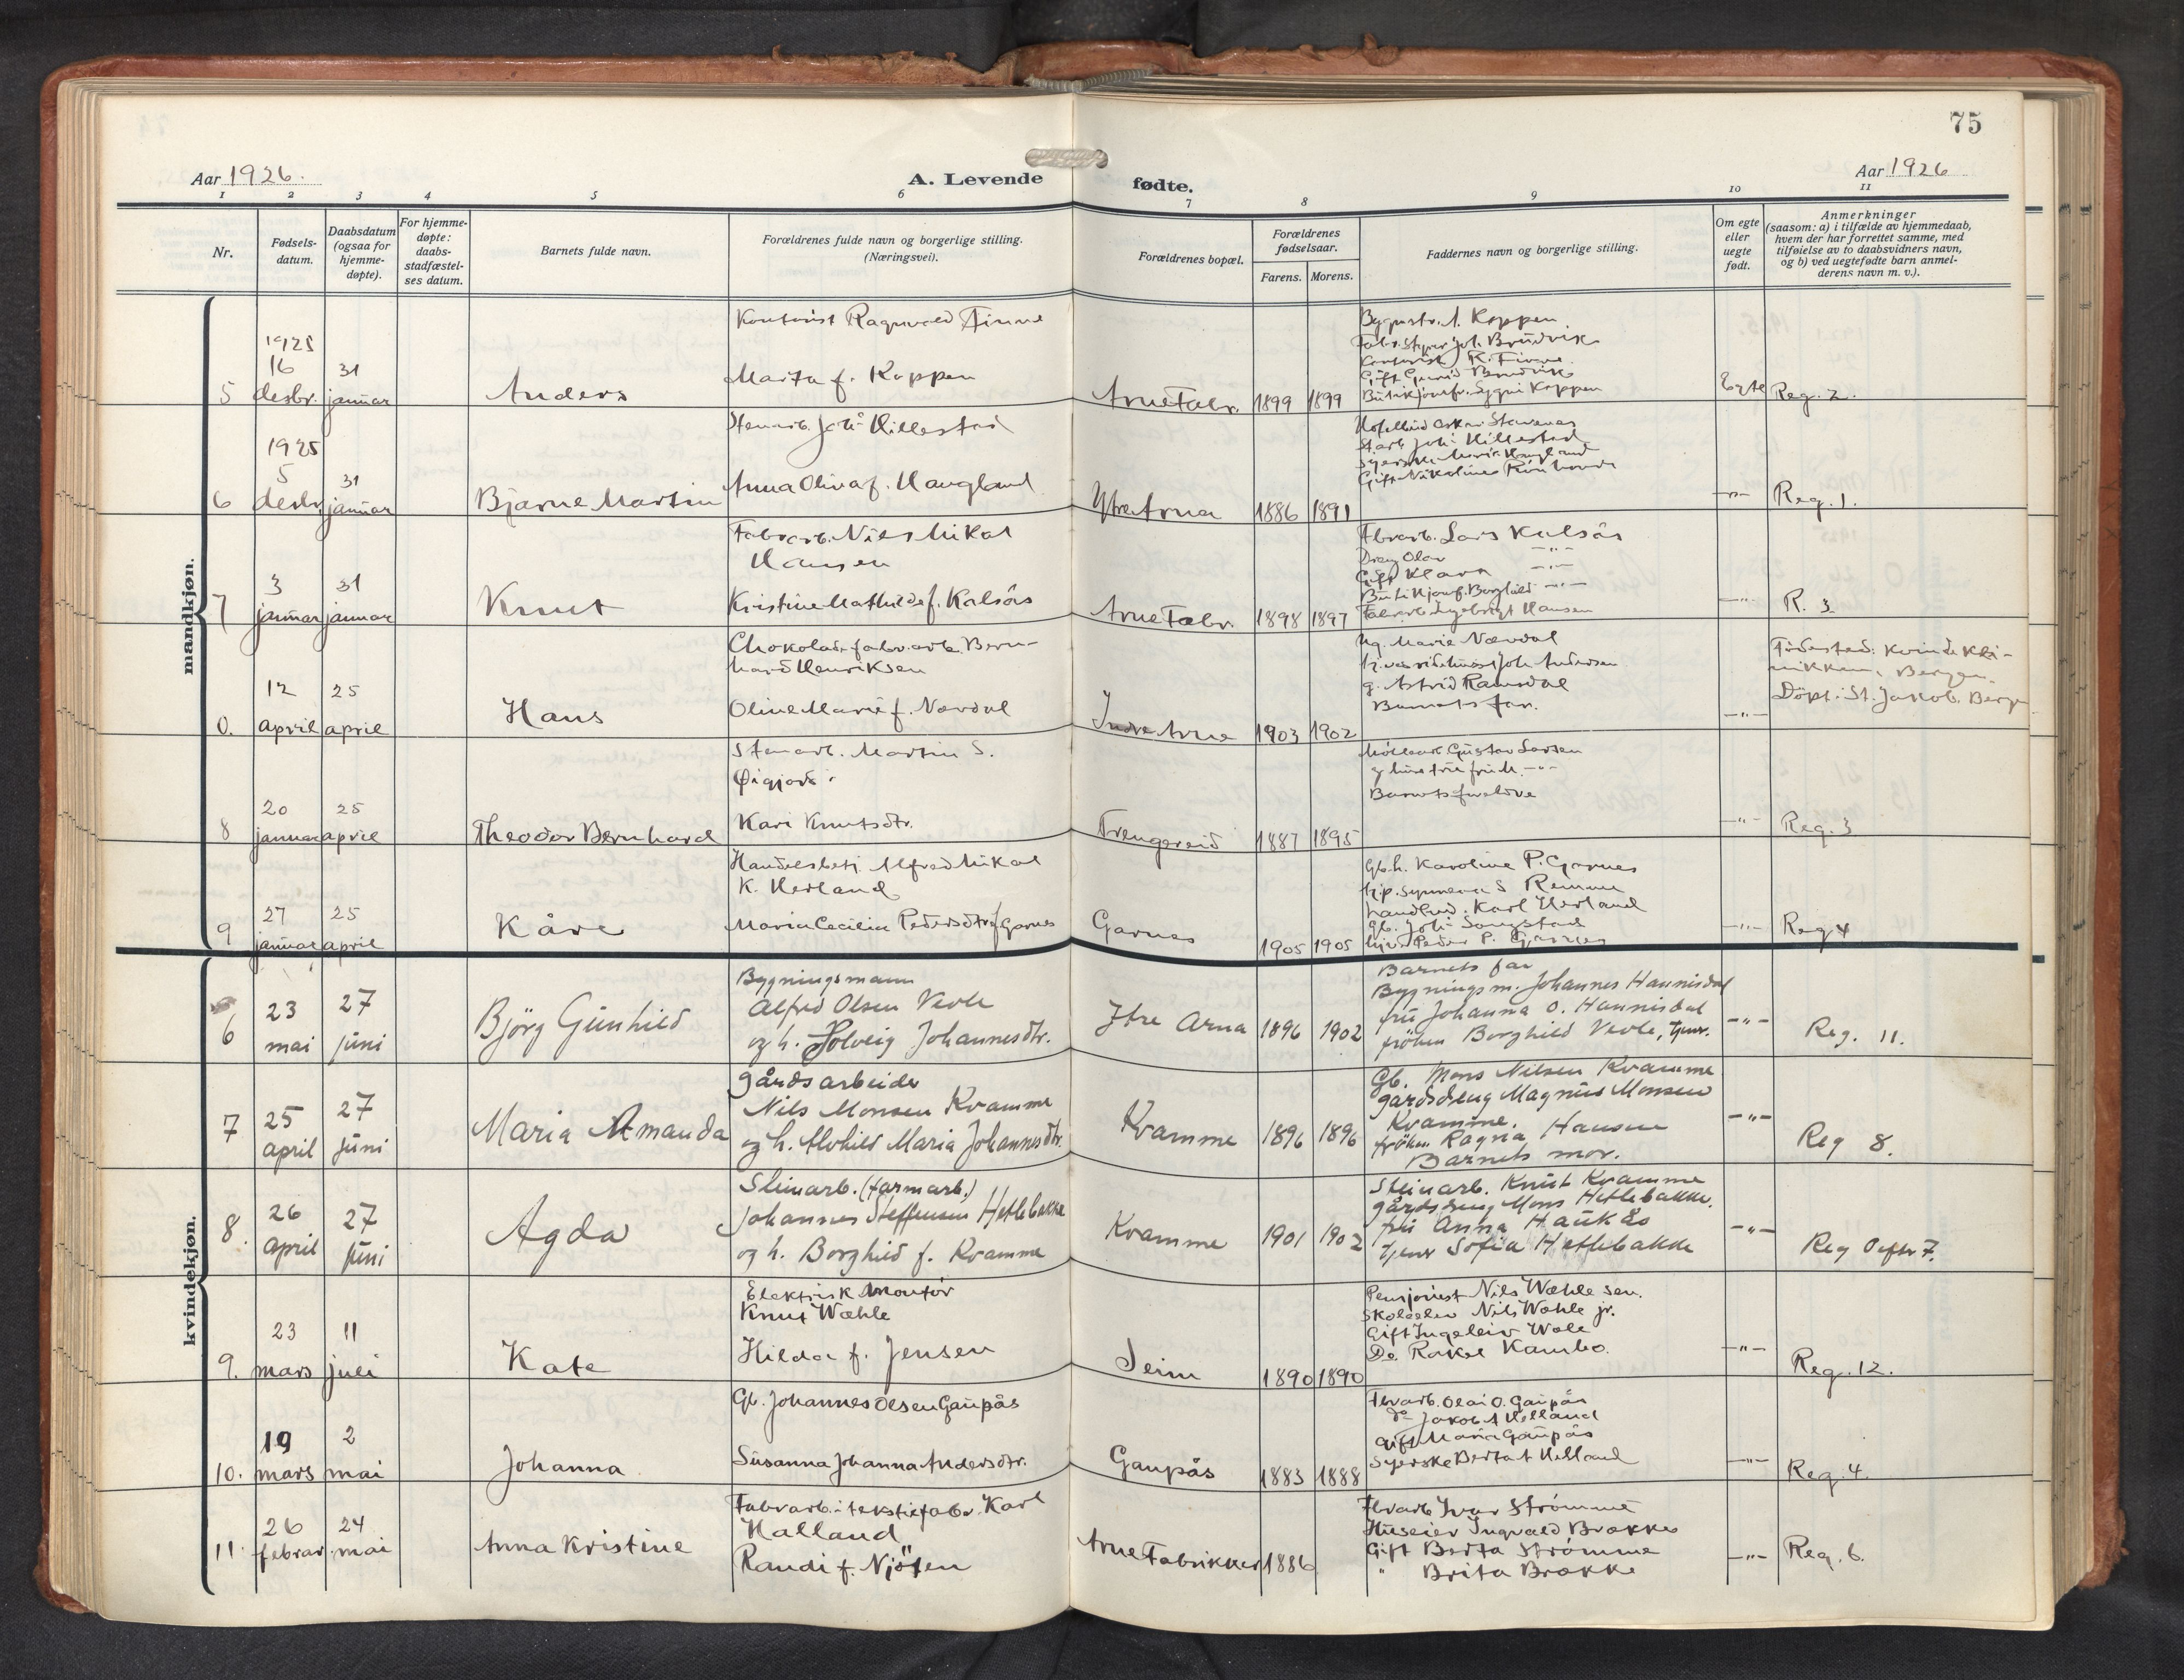 75
Aar 1926.
A. Levende fødte.
Aar 1926
1 2 3 4 5 6 7 8 9 10 11
Nr.
Fødsels-
datum.
Daabsdatum
(ogsaa for
hjemme-
døpte).
For hjemme-
døpte:
daabs-
stadfæstel-
ses datum.
Barnets fulde navn.
Forældrenes fulde navn og borgerlige stilling.
(Næringsvei).
Forældrenes bopæl.
Forældrenes
fødselsaar.
Farens. Morens.
Faddernes navn og borgerlige stilling.
Om egte
eller
uegte
født.
Anmerkninger
(saasom: a) i tilfælde av hjemmedaab,
hvem der har forrettet samme, med
tilføielse av to daabsvidners navn,
og b) ved uegtefødte barn anmel-
derens navn m. v.).
mandkjøn.
5
1925
16
desbr.
31
januar
Anders
Kontorist Ragnvald
Marta f. Koppen
Arne Fabr.
1899 1899
A. Koppen
Joh. Brudvik
Kontorist
Brudvik
Koppen
Egte
Reg. 2.
6
1925
5
desbr.
31
januar
Bjarne Martin
Stenarb. Joh. Hillestad
Anna Oliva f. Haugland
Ytre Arna
1886 1891
Joh. Hillestad
Haugland
Gift Nikoline
-"-
Reg. 1.
7
3
januar
31
januar
Knut
Fabrarb. Nils Mikal
Hansen
Kristine Mathilde f. Kalsås
Arne Fabr.
1898 1897
Fbrarb. Lars Kalsås
Dreng Olav -"-
Gift Klara -"-
Borghild -"-
Fabrarb. Hansen
-"-
R. 3
0.
12
april
25
april
Hans
Chokoladefabr.arb. Bern-
hard Henriksen
Oline Marie f. Nævdal
Indre Arne
1903 1902
Ug. Marie Nævdal
Joh. Andersen
g. Astrid Ramsdal
Barnets far.
-"-
Fødested: Kvindekli-
nikken, Bergen.
Döpt: St. Jakob, Berg
8
20
januar
25
april
Theodor Bernhard
Stenarb. Martin S.
Øigjord
Kari Knutsdtr.
Trengereid
1887 1895
Gustav Larsen
Barnets foreldre
-"-
Reg. 3
9
27
januar
25
april
Kåre
Handelsbetj. Alfred Mikal
K. Herland
Maria Cecilia Pedersdtr. f. Garnes
Garnes
1905 1905
Gb.h. Karoline P. Garnes
Karl Herland
Gb. Joh. Songstad
Peder P. Garnes
-"-
Reg 4
kvindekjøn.
6
23
mai
27
juni
Björg Gunhild
Bygningsmann
Alfred Olsen Vevle
og h. Solveig Johannesdtr.
Ytre Arna
1896 1902
Barnets far
Bygningsm. Johannes Hannisdal
fru Johanna O. Hannisdal
fröken Borghild Vevle, tjener.
-"-
Reg. 11.
7
25
april
27
juni
Maria Amanda
gårdsarbeider
Nils Monsen Kvamme
og h. Alvhild Maria Johannesdtr.
Kvamme
1896 1896
Gb. Mons Nilsen Kvamme
gårdsdreng Magnus Monsen
Kvamme.
fröken Ragna Hansen
Barnets mor.
-"-
Reg 8.
8.
26
april
27
juni
Agda
Steinarb. (farmarb.)
Johannes Steffensen Hetlebakke
og h. Borghild f. Kvamme
Kvamme
1901 1902
Steinarb. Knut Kvamme
gårdsdreng Mons Hetlebakke.
fru Anna Haukås
tjener Sofia Hetlebakke
-"-
Reg 0 efter 7.
9.
23
mars
11
juli
Kate
Elektrisk montör
Knut Wæhle
Hilda f. Jensen
Seim
1890 1890
Pensjonist Nils Wæhle sen.
Skoleelev Nils Wæhle jr.
Gift Ingeleiv Wale
Do Rakel Kambo.
-"-
Reg. 12.
10.
19
mars
2
mai
Johanna
Gb. Johannes Olsen Gaupås
Susanna Johanna Andersdtr.
Gaupås
1883 1888
Fbrarb. Olai O. Gaupås
do Jakob A Helland
Gift Maria Gaupås
Syerske Berta A Helland
-"-
Reg. 4.
11.
26
februar
24
mai
Anna Kristine
Fabrarb. i tekstilfabr. Karl
Halland
Randi f. Njöten
Arne Fabrikker
1886
Fbrarb Ivar Strömme
Huseier Ingvald Brakke
Gift Berta Strömme
" Brita Brakke
-"-
Reg. 6.